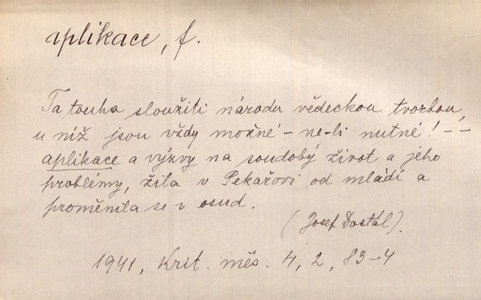 aplikace, f.
Ta touha sloužiti národu vědeckou tvorbou,
u níž jsou vždy možné – ne-li nutné! – –
aplikace a výzvy na soudobý život a jeho
problémy, žila v Pekařovi od mládí a
proměnila se v osud.
(Josef Dostál).
1941, Krit. měs. 4, 2, 83-4